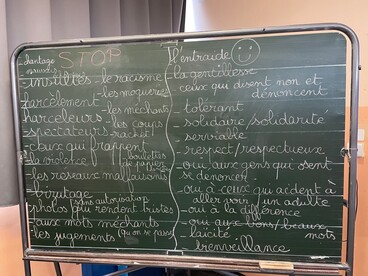 chantage
STOP
- insultes - le racisme
- les moqueries
harcèlement - les méchants
harceleurs - les coups
spectateurs - racket
- ceux qui frappent
la violence
boulettes
de papier
- les réseaux malfaisants
- brutage
sans autorisation
- photos qui rendent tristes
- aux mots méchants
- les jugements (qu'on se fasse)
L'entraide
- la gentillesse
- ceux qui disent non et
dénoncent
- tolérant
- solidaire/solidarité
- serviable
- respect/respectueux
- oui aux gens qui osent
se dénoncer
- oui à ceux qui aident à
aller voir un adulte
- oui à la différence
- oui aux bons/beaux
mots
laïcité
bienveillance